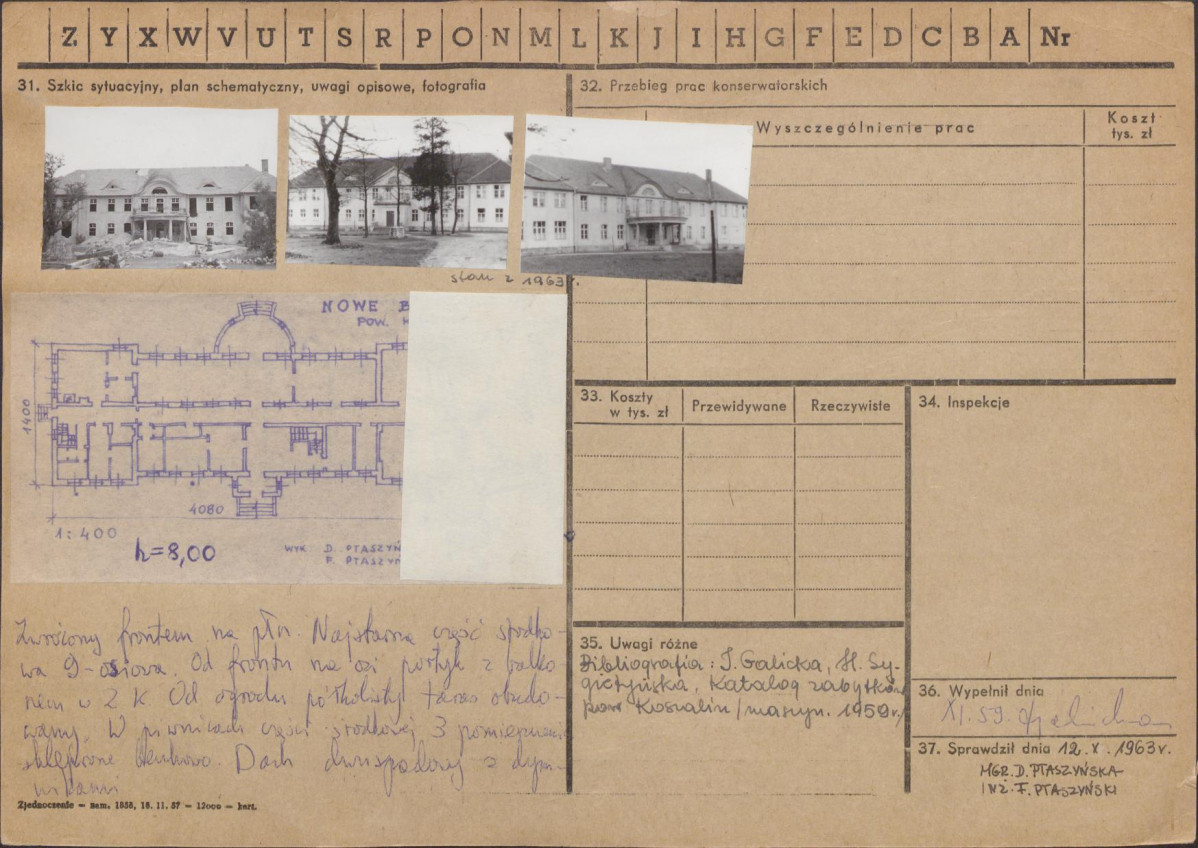 Z Y X W V U T S R P O N M L K J I H G F E D C B A Nr
31. Szkic sytuacyjny, plan schematyczny, uwagi opisowe, fotografia
stan z 1963 r.
NOWE B
POW. K
1400
4080
1:400
h=8,00
WYK D. PTASZYŃ
F. PTASZYŃ
Zwrócony frontem na płn. Najstarsza część środko-
wa 9-osiowa. Od frontu na osi portyk z balko-
nem w 2 k. Od ogrodu półkolisty taras obudo-
wany. W piwnicach części środkowej 3 pomieszczenia
sklepione kolebkowo. Dach dwuspadowy z dym-
nikami
Zjednoczenie — zam. 1658, 18. 11. 57 — 12000 — kart.
32. Przebieg prac konserwatorskich
Wyszczególnienie prac
Koszt
tys. zł
33. Koszty
w tys. zł
Przewidywane
Rzeczywiste
34. Inspekcje
35. Uwagi różne
Bibliografia: I. Galicka, H. Sy-
gietyńska, Katalog zabytków
pow. Koszalin /maszyn. 1959 r./
36. Wypełnił dnia
XI. 59.
37. Sprawdził dnia 12. X. 1963 r.
MGR. D. PTASZYŃSKA
INŻ. F. PTASZYŃSKI